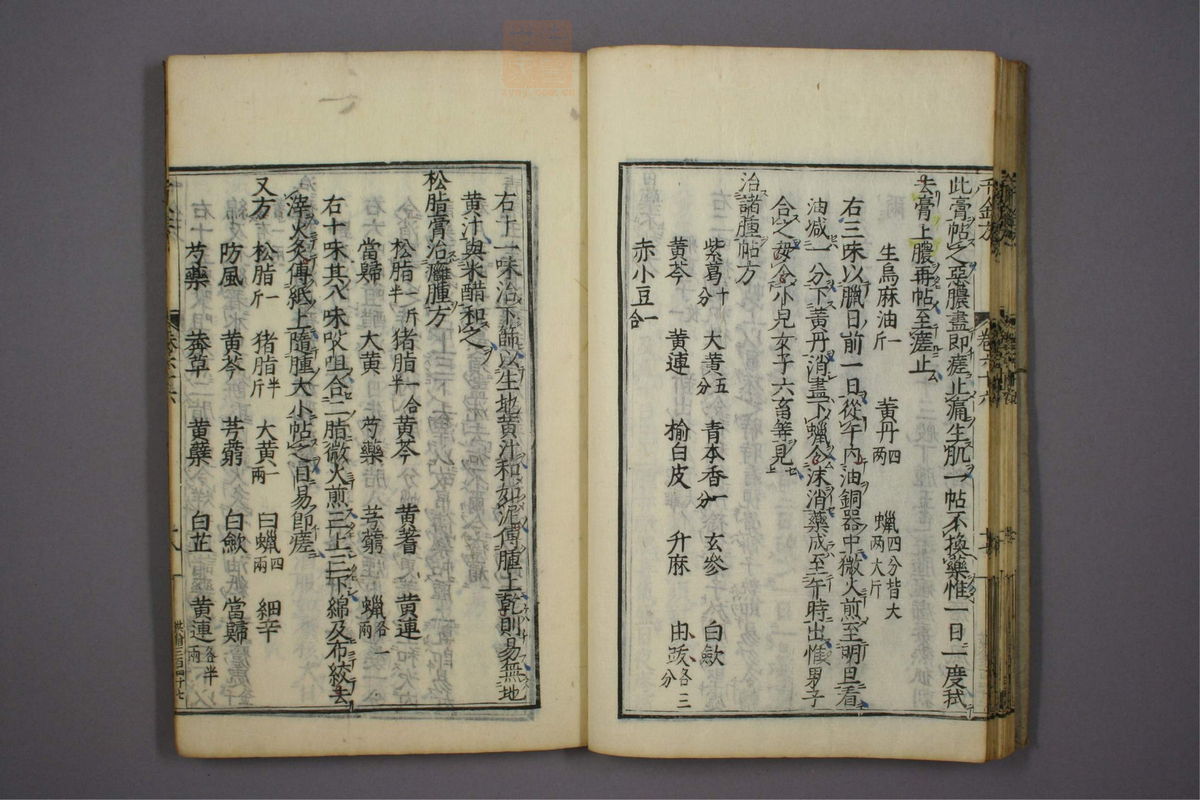 千金方
卷六十六
此膏帖之惡膿盡即瘥止痛生肌一帖不換藥惟一日一度拭
去膏上膿再帖至瘥止
生烏麻油一斤 黃丹四两 蠟四分皆大两大斤
右三味以臘日前一日從午内油銅器中微火煎至明旦看
油減一分下黃丹消盡下蠟令沫消藥成至午時出惟男子
合之毋令小兒女子六畜等見
治諸腫帖方
紫葛十分 大黃五分 青木香一分 玄參 白歛
黃芩 黃連 榆白皮 升麻 由跋各三分
赤小豆一合
右十一味治下篩以生地黃汁和如泥傅腫上乾則易無地
黃汁與米醋和之
松脂膏治癰腫方
松脂一斤半 猪脂一合半 黃芩 黃耆 黃連
當歸 大黃 芍藥 芎藭 蠟各一两
右十味其八味㕮咀合二脂微火煎三上三下綿及布絞去
滓火灸傅紙上隨腫大小帖之日易即瘥
又方 松脂一斤 猪脂半斤 大黃一两 白蠟四两 細辛
防風 黃芩 芎藭 白歛 當歸
芍藥 莽草 黃蘗 白芷 黃連各半两